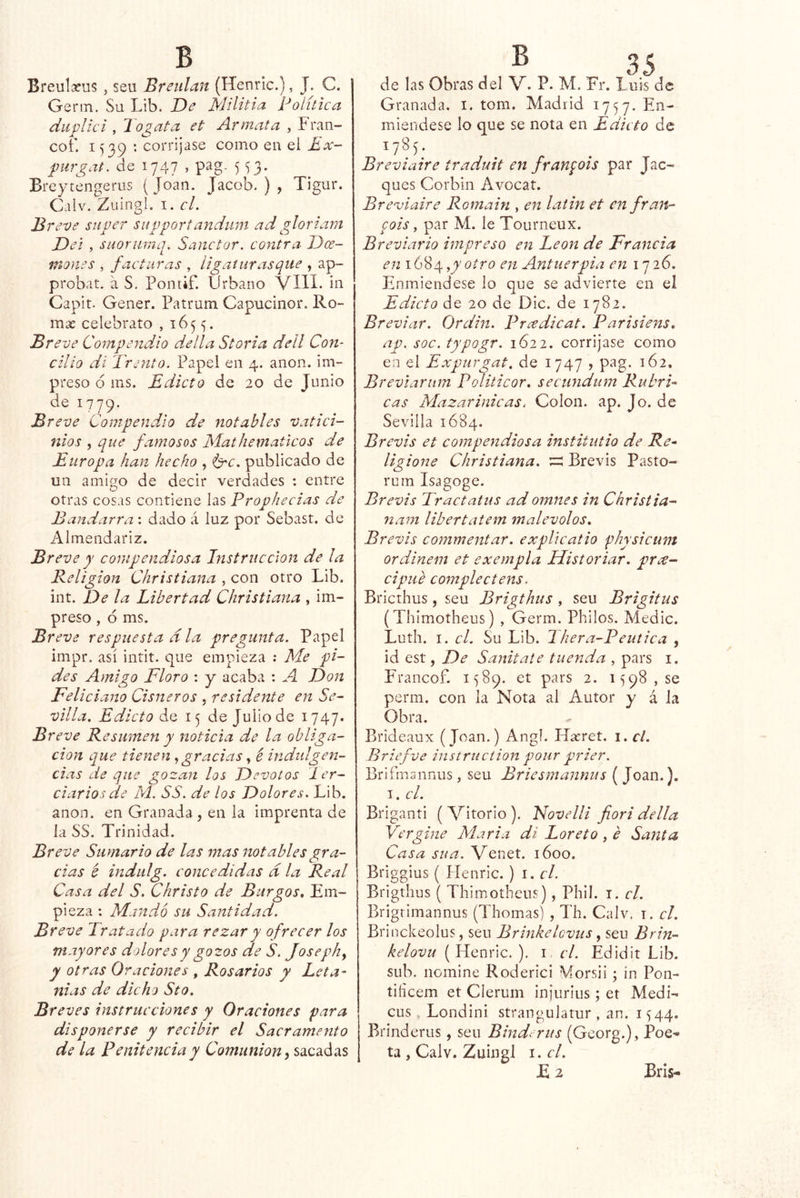 B
Breulæus , seu Breulan (Henric.), J. C.
Germ. Su Lib. De Militia Politica
duplici , Togata et Armata , Fran-
cof. 1539 : corrijase como en el Ex-
purgat. de 1747 , pag. 553.
Breytengerus ( Joan. Jacob. ) , Tigur.
Calv. Zuingl. 1. cl.
Breve super supportandum ad gloriam
Dei , suorumq. Sanctor. contra Dœ-
mones , facturas , ligaturasque , ap-
probat. à S. Pontif. Urbano VIII. in
Capit. Gener. Patrum Capucinor. Ro-
mæ celebrato , 1655.
Breve Compendio della Storia dell Con-
cilio di Trento. Papel en 4. anon. im-
preso ó ms. Edicto de 20 de Junio
de 1779.
Breve Compendio de notables vatici-
nios , que famosos Mathematicos de
Europa han hecho , &c. publicado de
un amigo de decir verdades : entre
otras cosas contiene las Prophecias de
Bandarra : dado á luz por Sebast. de
Almendariz.
Breve y compendiosa Instruccion de la
Religion Christiana , con otro Lib.
int. De la Libertad Christiana , im-
preso , ó ms.
Breve respuesta á la pregunta. Papel
impr. asi intit. que empieza : Me pi-
des Amigo Floro : y acaba : A Don
Feliciano Cisneros , residente en Se-
villa. Edicto de 15 de Julio de 1747.
Breve Resumen y noticia de la obliga-
cion que tienen , gracias , é indulgen-
cias de que gozan los Devotos Ter-
ciarios de M. SS. de los Dolores. Lib.
anon. en Granada , en la imprenta de
la SS. Trinidad.
Breve Sumario de las mas notables gra-
cias é indulg. concedidas á la Real
Casa del S. Christo de Burgos. Em-
pieza : Mandó su Santidad.
Breve Tratado para rezar y ofrecer los
mayores dolores y gozos de S. Joseph,
y otras Oraciones , Rosarios y Leta-
nias de dicho Sto.
Breves instrucciones y Oraciones para
disponerse y recibir el Sacramento
de la Penitencia y Comunion, sacadas
B 35
de las Obras del V. P. M. Fr. Luis de
Granada. 1. tom. Madrid 1757. En-
miendese lo que se nota en Edicto de
1785.
Breviaire traduit en françois par Jac-
ques Corbin Avocat.
Breviaire Romain , en latin et en fran-
çois , par M. le Tourneux.
Breviario impreso en Leon de Francia
en 1684 , y otro en Antuerpia en 1726.
Enmiendese lo que se advierte en el
Edicto de 20 de Dic. de 1782.
Breviar. Ordin. Prædicat. Parisiens.
ap. soc. typogr. 1622. corrijase como
en el Expurgat. de 1747 , pag. 162.
Breviarum Politicor. secundum Rubri-
cas Mazarinicas. Colon. ap. Jo. de
Sevilla 1684.
Brevis et compendiosa institutio de Re-
ligione Christiana. = Brevis Pasto-
rum Isagoge.
Brevis Tractatus ad omnes in Christia-
nam libertatem malevolos.
Brevis commentar. explicatio physicum
ordinem et exempla Historiar. præ-
cipuè complectens.
Bricthus , seu Brigthus , seu Brigitus
(Thimotheus) , Germ. Philos. Medic.
Luth. 1. cl. Su Lib. Thera-Peutica ,
id est , De Sanitate tuenda , pars 1.
Francof. 1589. et pars 2. 1598 , se
perm. con la Nota al Autor y á la
Obra.
Brideaux ( Joan. ) Angl. Hæret. 1. cl.
Briefve instruction pour prier.
Brifmannus , seu Briesmannus ( Joan. ).
1. cl.
Briganti ( Vitorio ). Novelli fiori della
Vergine Maria di Loreto , è Santa
Casa sua. Venet. 1600.
Briggius ( Henric. ) 1. cl.
Brigthus ( Thimotheus) , Phil. 1. cl.
Brigtimannus (Thomas) , Th. Calv. 1. cl.
Brinckeolus , seu Brinkelovus , seu Brin-
kelovu ( Henric. ). 1. cl. Edidit Lib.
sub. nomine Roderici Morsii ; in Pon-
tificem et Clerum injurius ; et Medi-
cus , Londini strangulatur , an. 1544.
Brinderus , seu Binderus (Georg.), Poe-
ta , Calv. Zuingl 1. cl.
E 2 Bris-